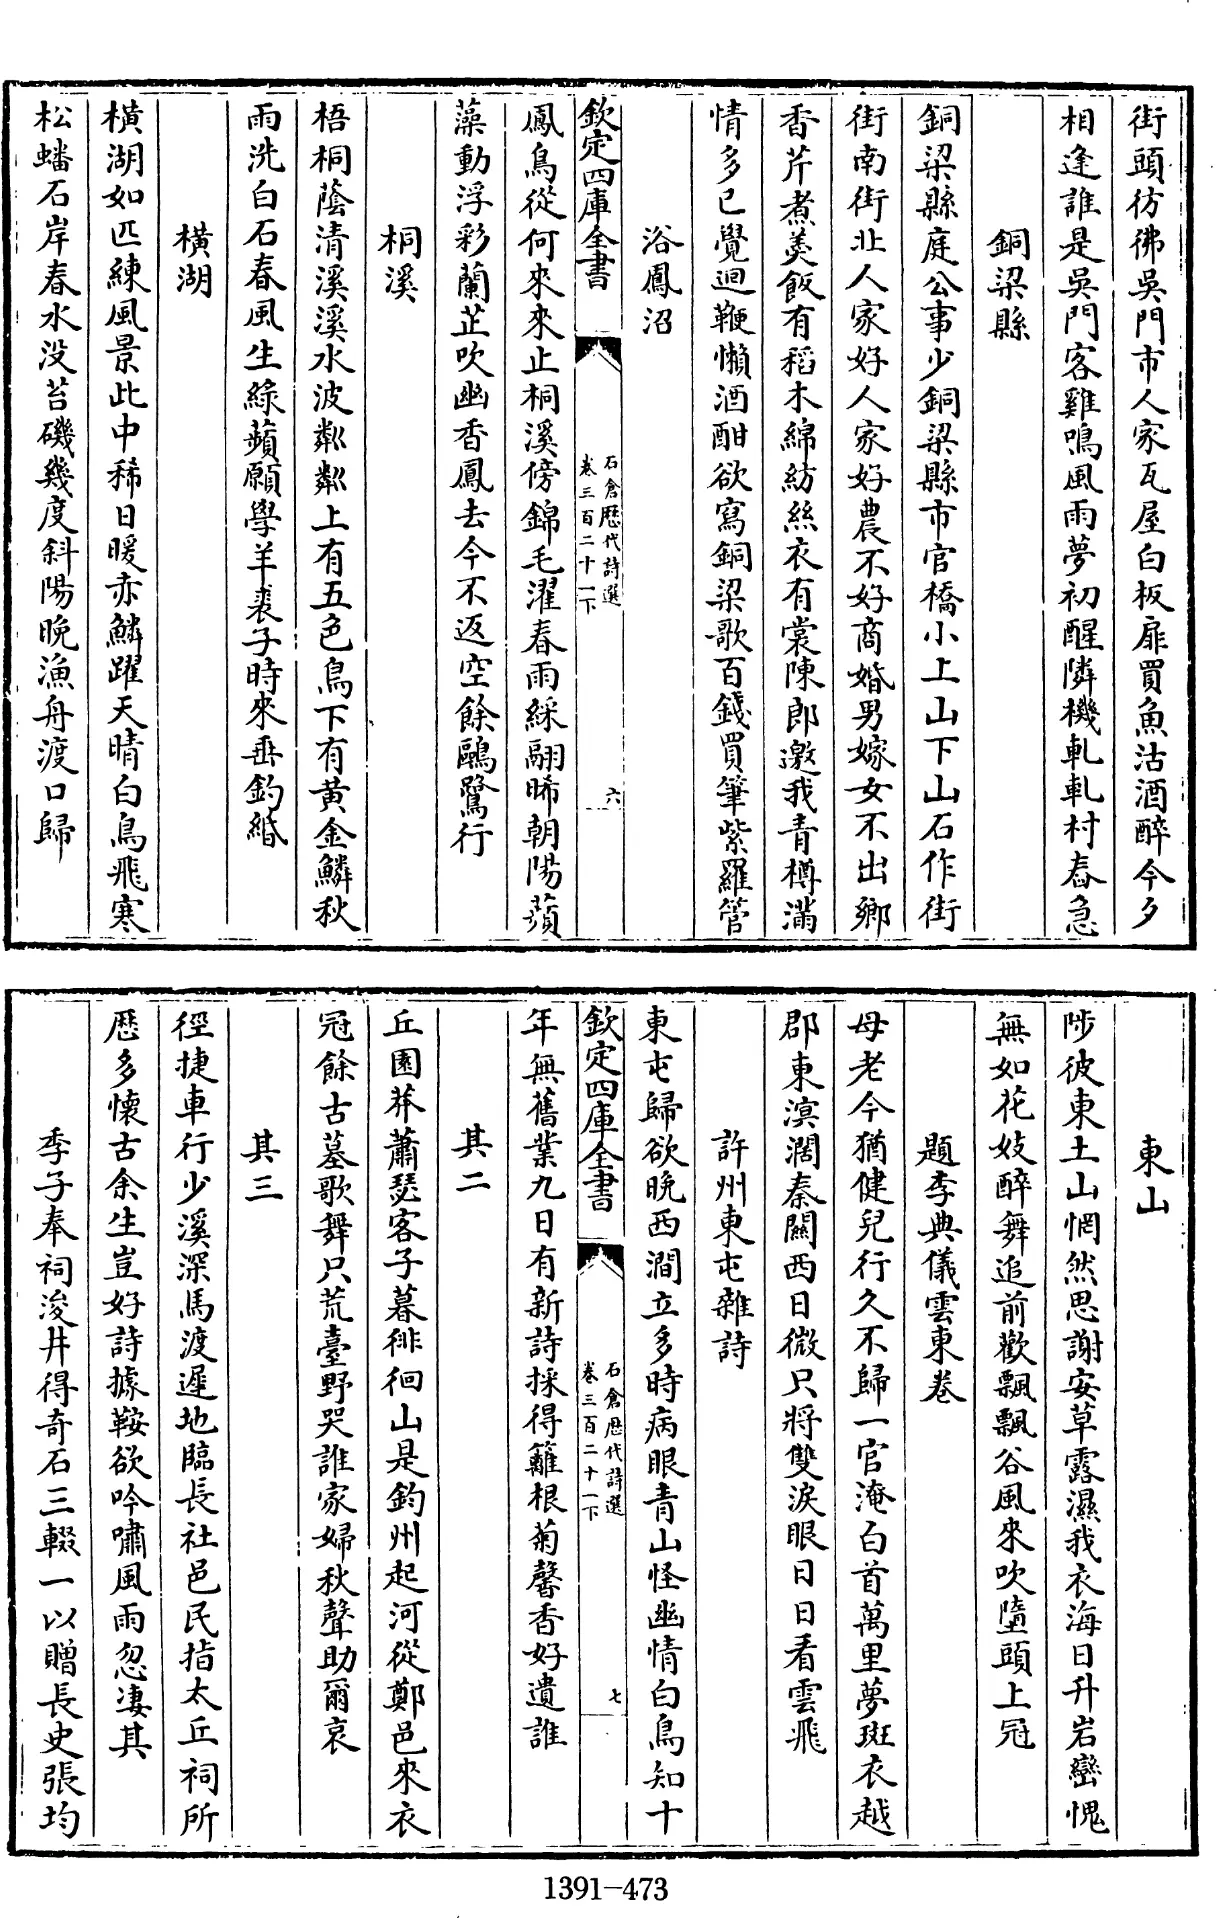 街頭彷彿吳門市人家瓦屋白板扉買魚沽酒醉今夕
相逢誰是吳門客雞鳴風雨夢初醒隣機軋軋村舂急
銅梁縣
銅梁縣庭公事少銅梁縣市官橋小上山下山石作街
街南街北人家好人家好農不好商婚男嫁女不出鄉
香芹煮羮飯有稻木綿紡絲衣有裳陳郎邀我青樽滿
情多已覺迴鞭懶酒酣欲寫銅梁歌百錢買筆紫羅管
浴鳳沼
欽定四庫全書
石倉歷代詩選
卷三百二十一下
六
鳳鳥從何來來止桐溪傍錦毛濯春雨綵翮晞朝陽蘋
藻動浮彩蘭芷吹幽香鳳去今不返空餘鷗鷺行
桐溪
梧桐蔭清溪溪水波粼粼上有五色鳥下有黄金鱗秋
雨洗白石春風生綠蘋願學羊裘子時來垂釣緡
橫湖
橫湖如匹練風景此中稀日暖赤鱗躍天晴白鳥飛寒
松蟠石岸春水没苔磯幾度斜陽晚漁舟渡口歸
東山
陟彼東土山惘然思謝安草露濕我衣海日升岩巒愧
無如花妓醉舞追前歡飄飄谷風來吹墮頭上冠
題李典儀雲東卷
母老今猶健兒行久不歸一官淹白首萬里夢斑衣越
郡東溟濶秦關西日微只將雙淚眼日日看雲飛
許州東屯雜詩
東屯歸欲晚西澗立多時病眼青山怪幽情白鳥知十
欽定四庫全書
石倉歷代詩選
卷三百二十一下
七
年無舊業九日有新詩採得籬根菊馨香好遺誰
其二
丘園莽蕭瑟客子暮徘徊山是鈞州起河從鄭邑來衣
冠餘古墓歌舞只荒臺野哭誰家婦秋聲助爾哀
其三
徑捷車行少溪深馬渡遲地臨長社邑民指太丘祠所
歷多懷古余生豈好詩據鞍欲吟嘯風雨忽凄其
季子奉祠浚井得奇石三輟一以贈長史張均
1391-473